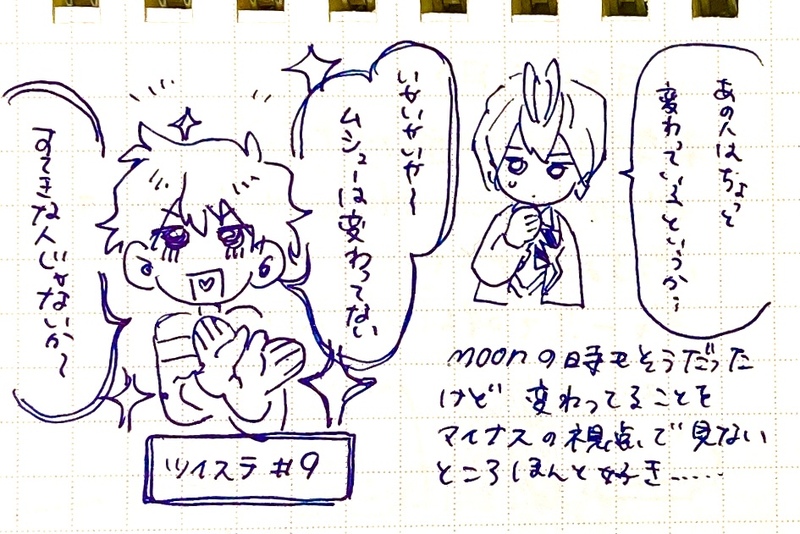 あの人はちょっと
変わっているというか〜
いやいやいや〜
ムシューは変わってない
すてきな人じゃないか〜
moonの時もそうだった
けど 変わってることを
マイナスの視点で見ない
ところほんと好き……
ツイステ#9